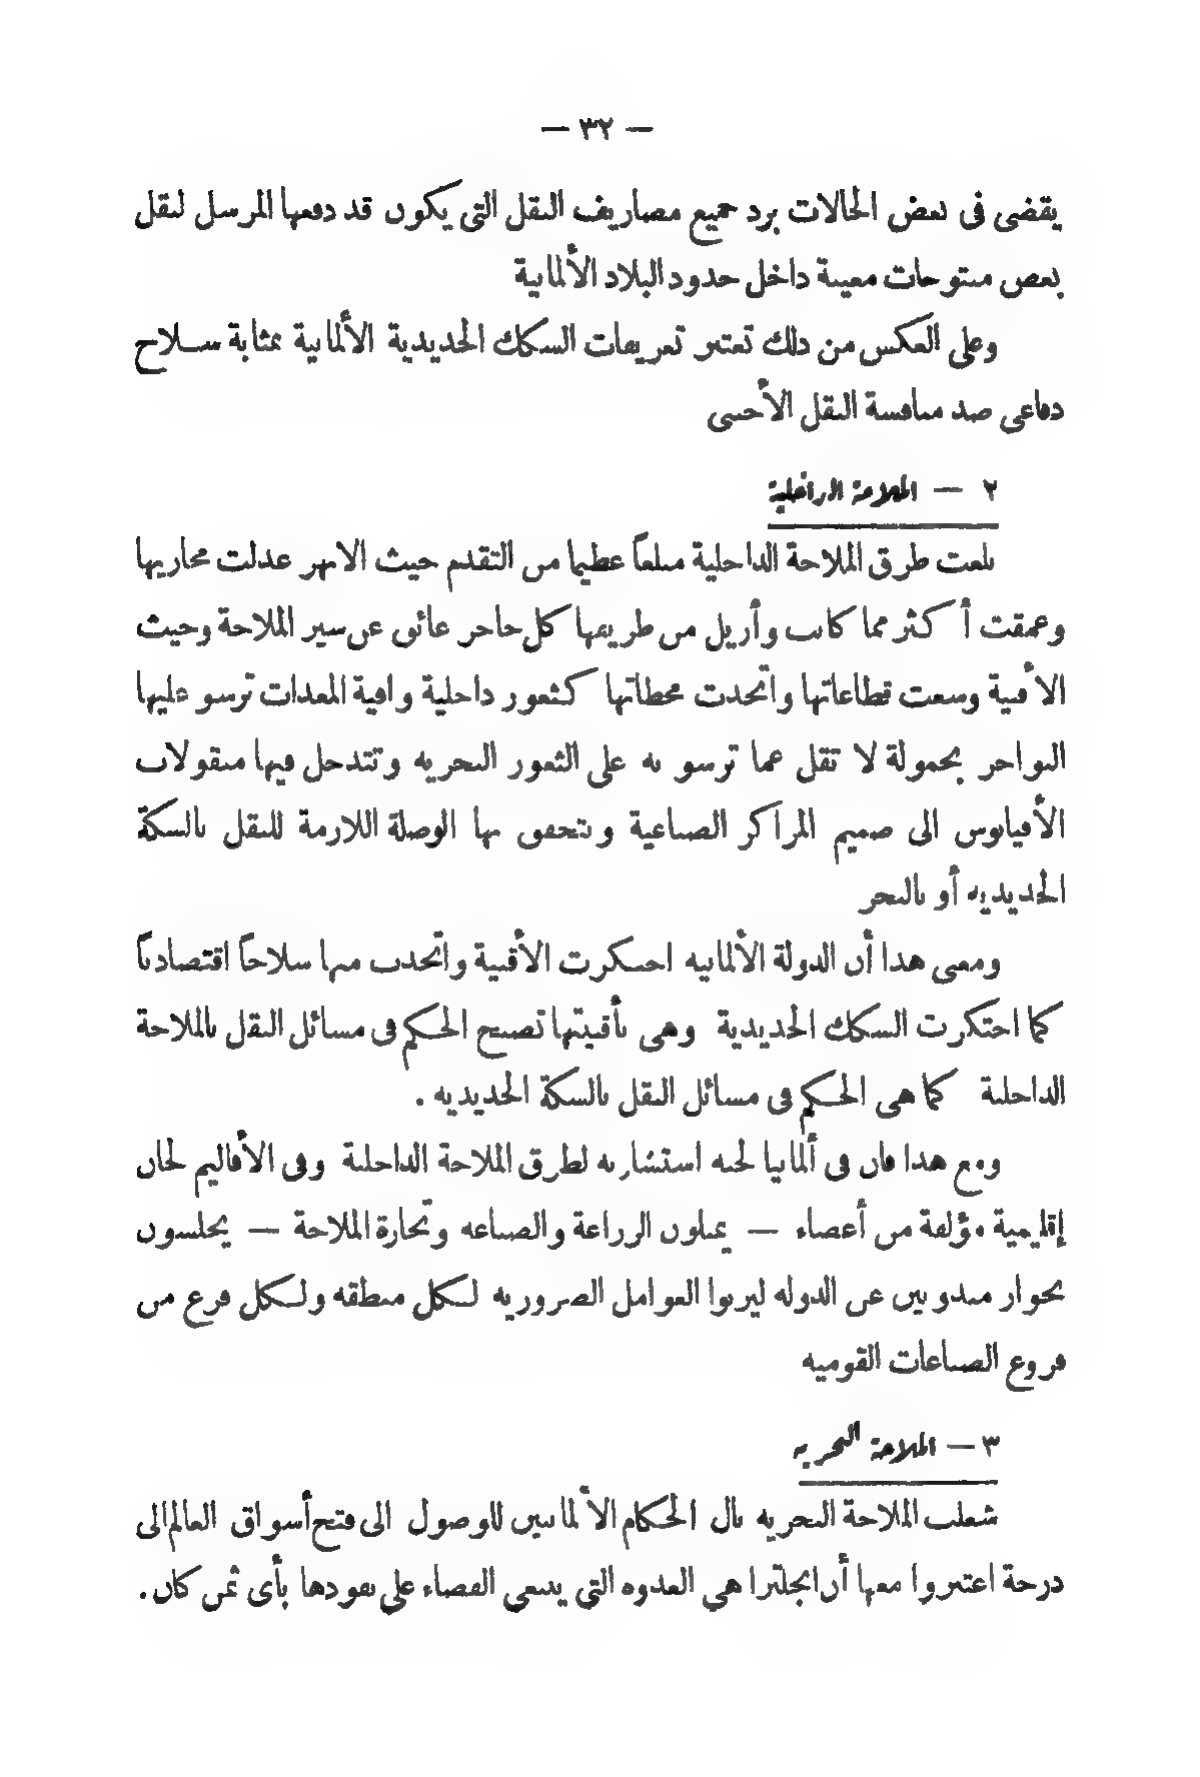 — ٣٢ —
يقضى فى بعض الحالات برد جميع مصاريف النقل التى يكون قد دفعها المرسل لنقل
بعض منتوجات معينة داخل حدود البلاد الألمانية
وعلى العكس من ذلك تعتبر تعريفات السكك الحديدية الألمانية بمثابة سلاح
دفاعى ضد منافسة النقل الأجنبى
٢ — الملاحة الداخلية
بلغت طرق الملاحة الداخلية مبلغاً عظيما من التقدم حيث الانهر عدلت مجاريها
وعمقت أكثر مما كانت وأزيل من طريقها كل حاجز عائق عن سير الملاحة وحيث
الأقنية وسعت قطاعاتها واتخذت محطاتها كثغور داخلية وافية المعدات ترسو عليها
البواخر بحمولة لا تقل عما ترسو به على الثغور البحرية وتتدخل فيها منقولات
الأقيانوس الى صميم المراكز الصناعية وتتحقق بها الوصلة اللازمة للنقل بالسكة
الحديدية أو بالبحر
ومعنى هذا أن الدولة الألمانية احتكرت الأقنية واتخذت منها سلاحاً اقتصادياً
كما احتكرت السكك الحديدية وهى بأقنيتها تصبح الحكم فى مسائل النقل بالملاحة
الداخلية كما هى الحكم فى مسائل النقل بالسكة الحديدية .
ومع هذا فان فى ألمانيا لجنة استشارية لطرق الملاحة الداخلية وفى الأقاليم لجان
إقليمية مؤلفة من أعضاء — يمثلون الزراعة والصناعة وتجارة الملاحة — يجلسون
بجوار مندوبين عن الدولة ليزنوا العوامل الضرورية لكل منطقة ولكل فرع من
فروع الصناعات القومية
٣ — الملاحة البحرية
شغلت الملاحة البحرية بال الحكام الألمانيين للوصول الى فتح أسواق العالم الى
درجة اعتبروا معها أن انجلترا هى العدوة التى يسعى القضاء على نفوذها بأى ثمن كان .